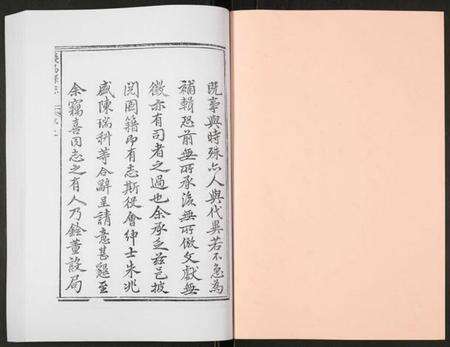 既事與時殊亦人與代異若不急為
補輯恐前無所承後無所倣文獻無
徵亦有司者之過也余承乏茲邑披
閱圖籍即有志斯役會紳士朱兆
盛陳瑞科等合辭呈請意甚懇至
余竊喜同志之有人乃餘董設局